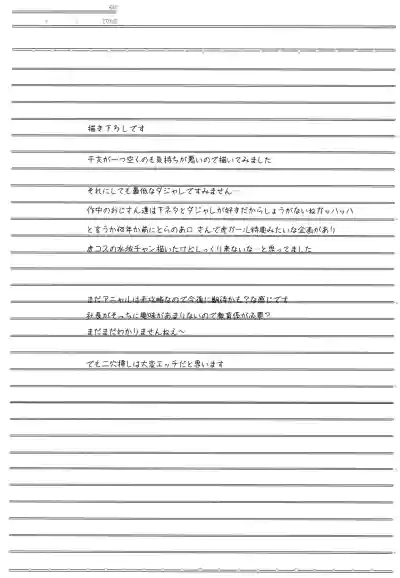 描き下ろしです
干支が一つ空くのも気持ちが悪いので描いてみました
それにしても最低なダジャレですみません…
作中のおじさん達は下ネタとダジャレが好きだからしょうがないねガッハッハ
と言うか何年か前にとらのあ口 さんで虎ガール特集みたいな企画があり
虎コスの水城チャン描いたけどしっくり来ないな…と思ってました
まだアニャルは未攻略なので今後に期待かも?な感じです
社長がそっちに興味があまりないので教育係が必要?
まだまだわかりませんねえ〜
でも二穴挿しは大変エッチだと思います